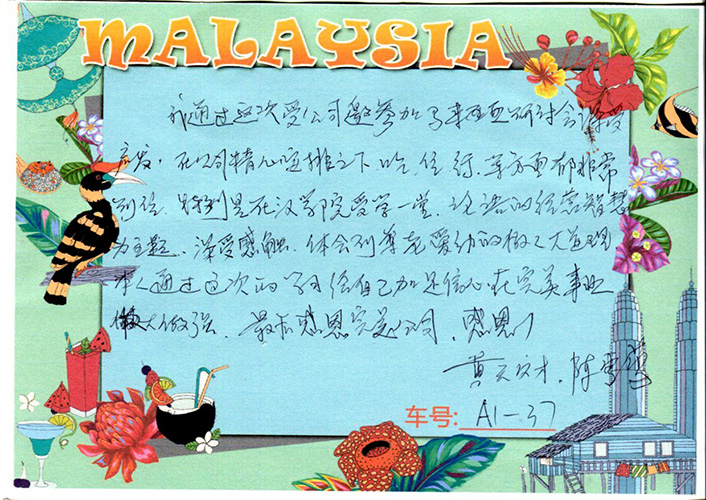 MALAYSIA
我通过这次受公司邀参加马来西亚研讨会深受
启发。在公司精心安排之下吃、住、行、等方面都非常
到位。特别是在汉学院受学一堂,论语的经营智慧
为主题、深受感触,体会到尊老爱幼的做人大道理
本人通过这次的学习给自己加足信心在完美事业
做大做强,最后感恩完美公司,感恩!
黄天才,陈雪
车号: A1-37